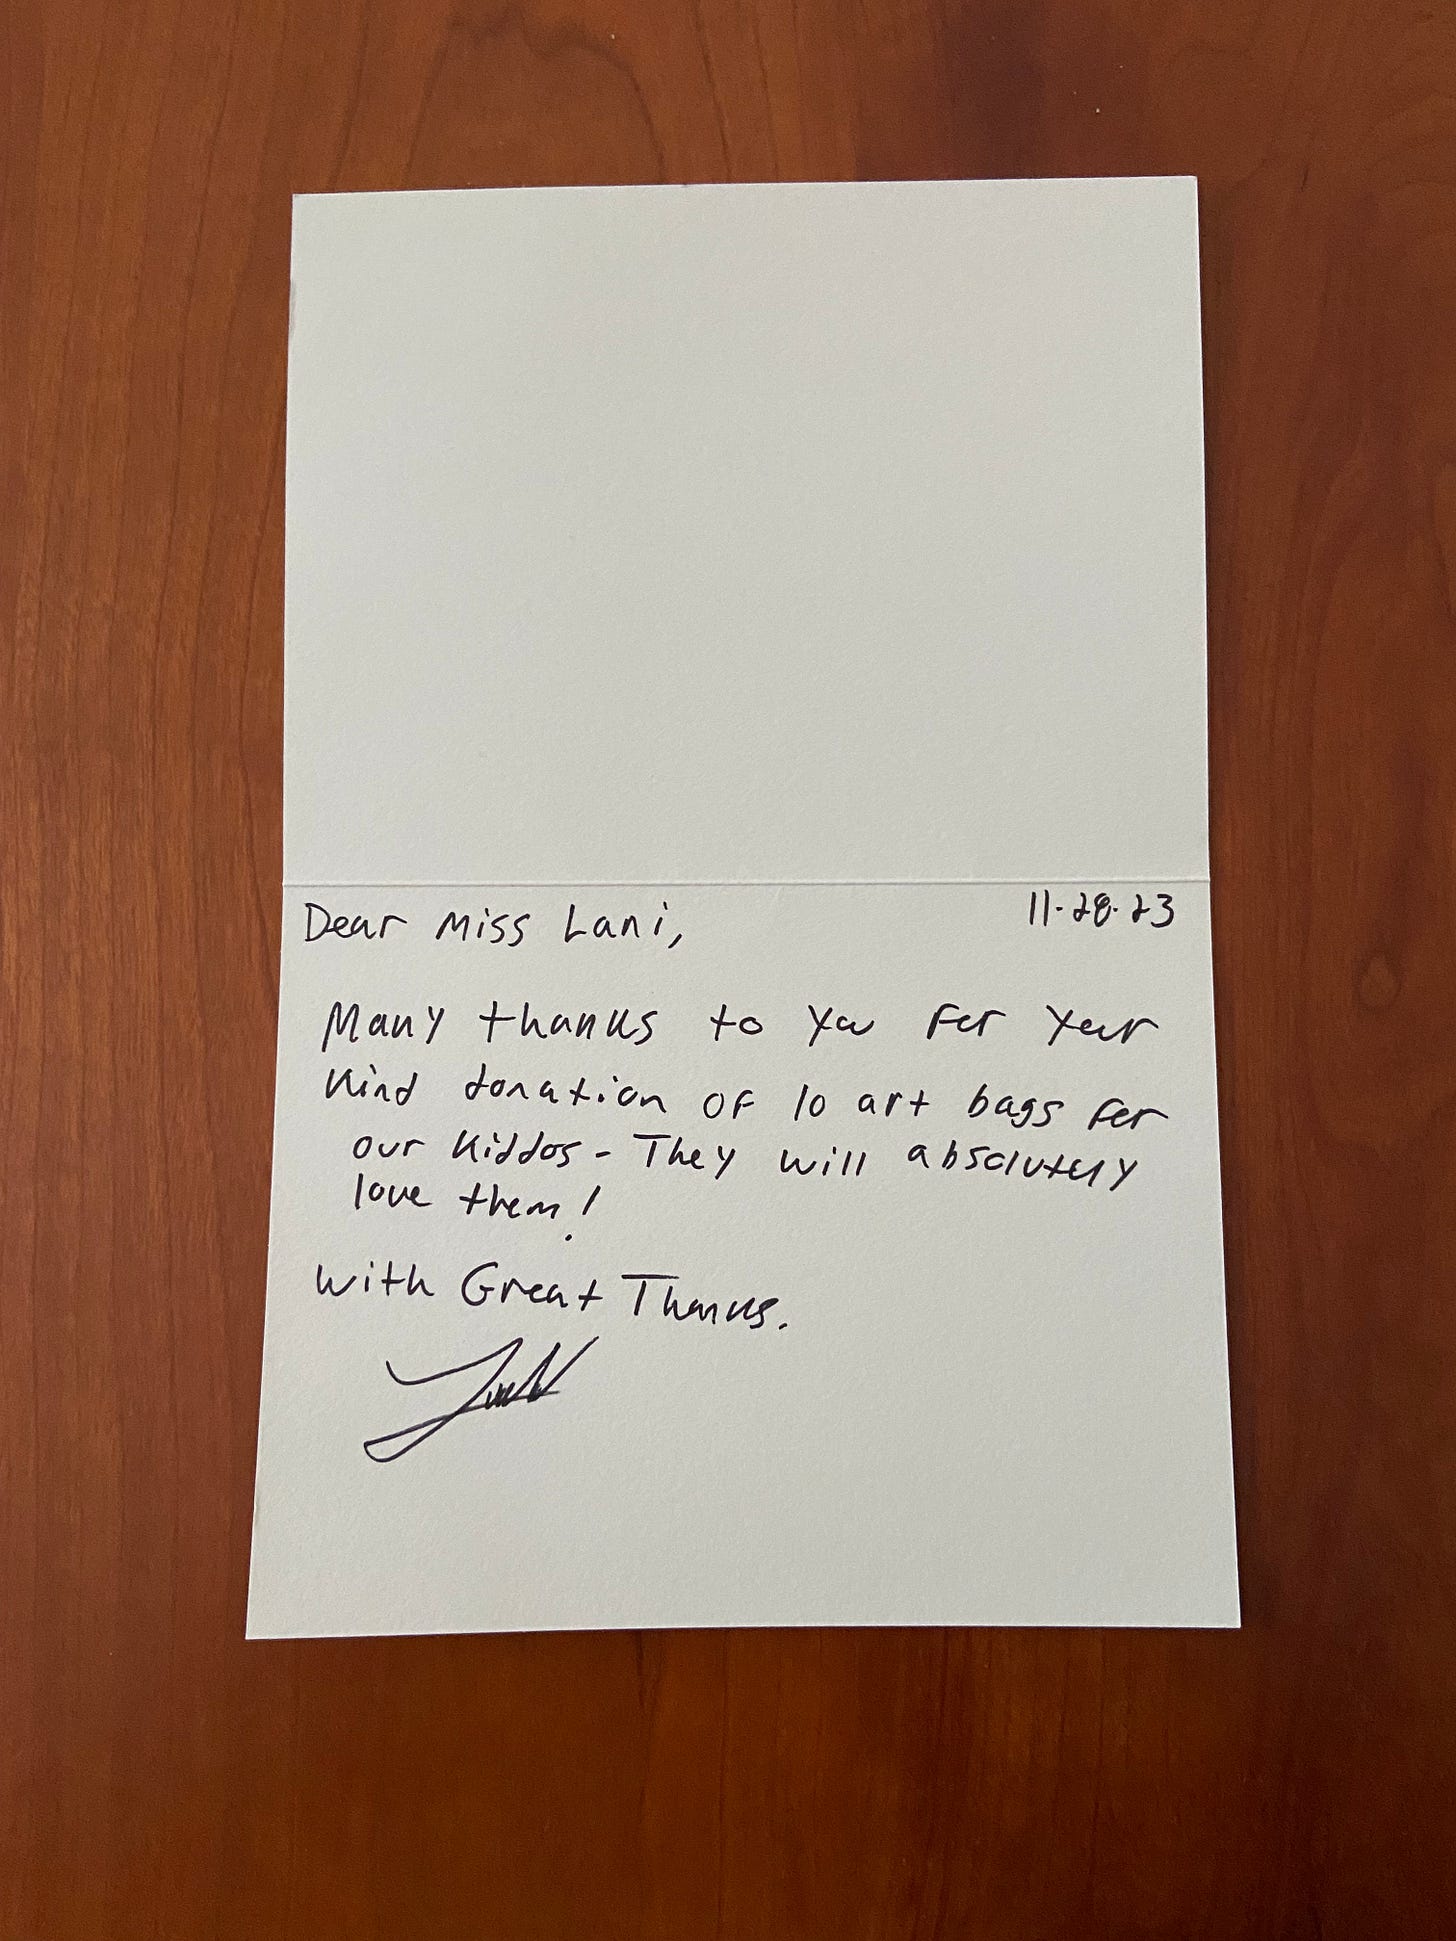 Dear Miss Lani, 11-28-23
Many thanks to you for your
kind donation of 10 art bags for
our kiddos - They will absolutely
love them!
With Great Thanks.